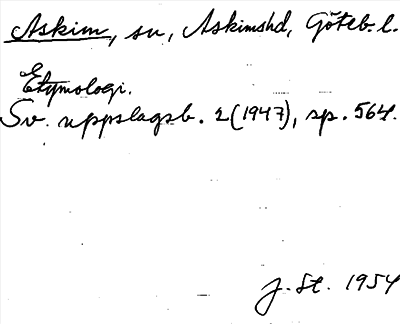 Askim, sn, Askimshd, Göteb. l.
Etymologi.
Sv. uppslagsb. 2 (1947), sp. 564.
J. St. 1954